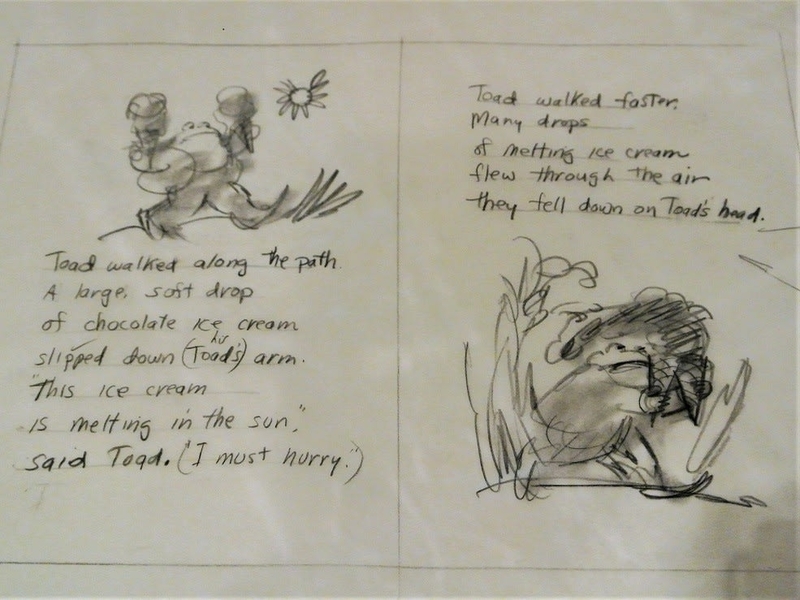 Toad walked along the path.
A large, soft drop
of chocolate ice cream
his
slipped down (Toad's) arm.
"This ice cream
is melting in the sun,"
said Toad. ("I must hurry.")
Toad walked faster.
Many drops
of melting ice cream
flew through the air
they fell down on Toad's head.